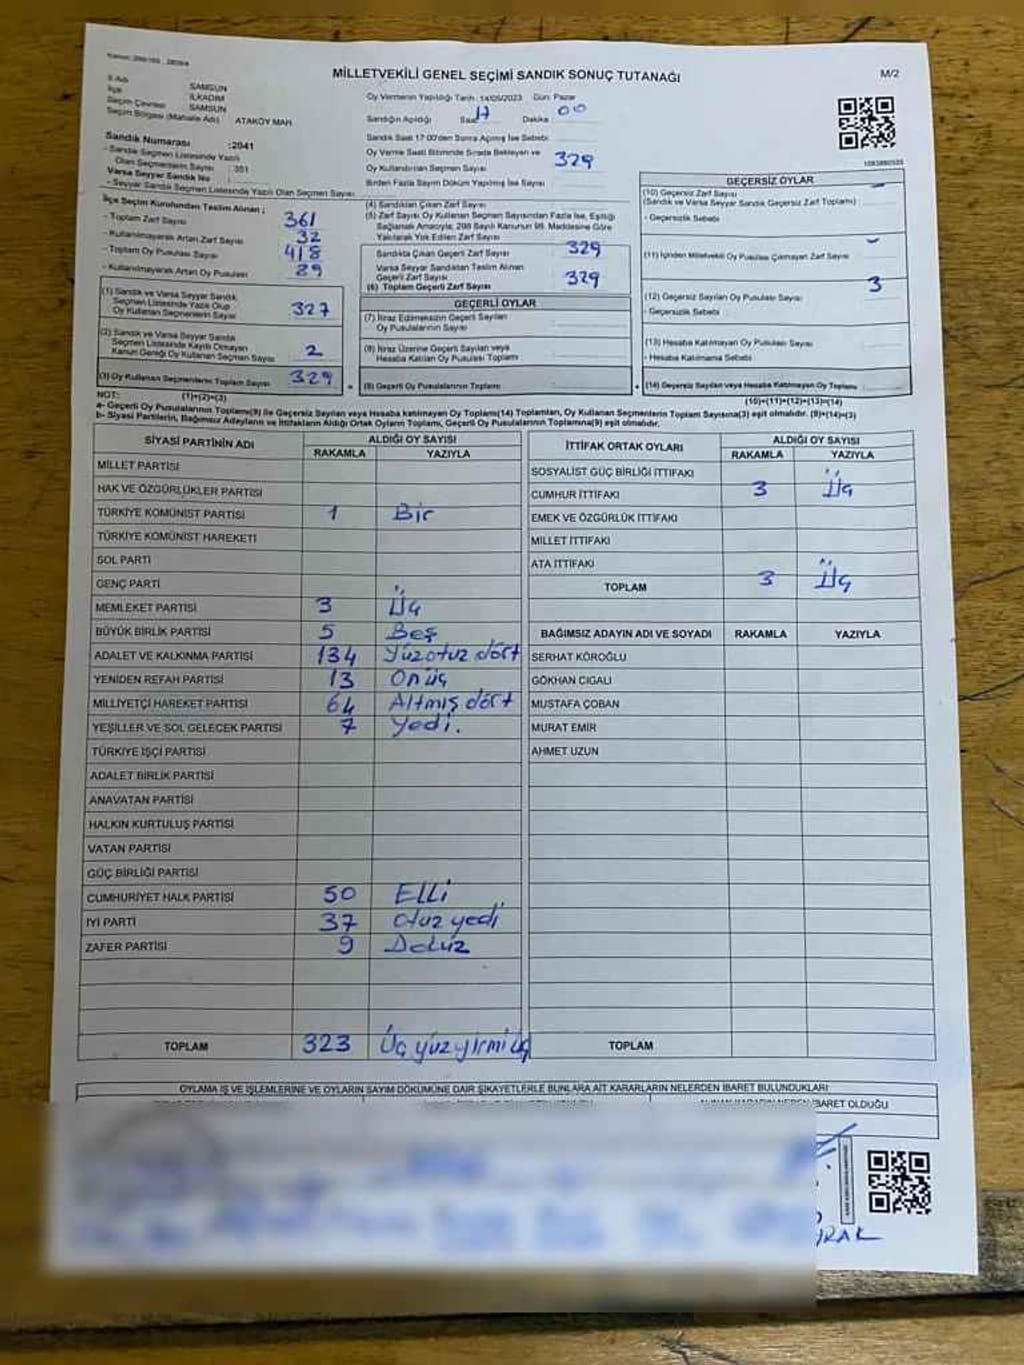 MİLLETVEKİLİ GENEL SEÇİMİ SANDIK SONUÇ TUTANAĞI
M/2
İl Adı SAMSUN
İlçe İLKADIM
Seçim Çevresi SAMSUN
Seçim Bölgesi (Mahalle Adı) ATAKÖY MAH.
Oy Vermenin Yapıldığı Tarih: 14/05/2023 Gün: Pazar
Sandığın Açıldığı Saat 17 Dakika 00
Sandık Saat 17:00'den Sonra Açılmış İse Sebebi
Oy Verme Saati Bitiminde Sırada Bekleyen ve
Oy Kullandıran Seçmen Sayısı 329
Birden Fazla Sayım Döküm Yapılmış İse Sayısı
Sandık Numarası :2041
- Sandık Seçmen Listesinde Yazılı
Olan Seçmenlerin Sayısı : 351
Varsa Seyyar Sandık No
- Seyyar Sandık Seçmen Listesinde Yazılı Olan Seçmen Sayısı
İlçe Seçim Kurulundan Teslim Alınan ;
- Toplam Zarf Sayısı 361
- Kullanılmayarak Artan Zarf Sayısı 32
- Toplam Oy Pusulası Sayısı 418
- Kullanılmayarak Artan Oy Pusulası 89
(1) Sandık ve Varsa Seyyar Sandık
Seçmen Listesinde Yazılı Olup
Oy Kullanan Seçmenlerin Sayısı 327
(2) Sandık ve Varsa Seyyar Sandık
Seçmen Listesinde Kayıtlı Olmayan
Kanun Gereği Oy Kullanan Seçmen Sayısı 2
(3) Oy Kullanan Seçmenlerin Toplam Sayısı 329
(1)+(2)=(3)
(4) Sandıktan Çıkan Zarf Sayısı
(5) Zarf Sayısı Oy Kullanan Seçmen Sayısından Fazla İse, Eşitliği
Sağlamak Amacıyla, 298 Sayılı Kanunun 98. Maddesine Göre
Yakılarak Yok Edilen Zarf Sayısı
Sandıkta Çıkan Geçerli Zarf Sayısı 329
Varsa Seyyar Sandıktan Teslim Alınan
Geçerli Zarf Sayısı
(6) Toplam Geçerli Zarf Sayısı 329
GEÇERLİ OYLAR
(7) İtiraz Edilmeksizin Geçerli Sayılan
Oy Pusulalarının Sayısı
(8) İtiraz Üzerine Geçerli Sayılan veya
Hesaba Katılan Oy Pusulası Toplamı
(9) Geçerli Oy Pusulalarının Toplamı
GEÇERSİZ OYLAR
(10) Geçersiz Zarf Sayısı -
(Sandık ve Varsa Seyyar Sandık Geçersiz Zarf Toplamı)
- Geçersizlik Sebebi
(11) İçinden Milletvekili Oy Pusulası Çıkmayan Zarf Sayısı -
(12) Geçersiz Sayılan Oy Pusulası Sayısı 3
- Geçersizlik Sebebi
(13) Hesaba Katılmayan Oy Pusulası Sayısı
- Hesaba Katılmama Sebebi
(14) Geçersiz Sayılan veya Hesaba Katılmayan Oy Pusulası Toplamı
(10)+(11)+(12)+(13)=(14)
NOT:
a- Geçerli Oy Pusulalarının Toplamı(9) İle Geçersiz Sayılan veya Hesaba katılmayan Oy Toplamı(14) Toplamları, Oy Kullanan Seçmenlerin Toplam Sayısına(3) eşit olmalıdır. (9)+(14)=(3)
b- Siyasi Partilerin, Bağımsız Adayların ve İttifakların Aldığı Ortak Oyların Toplamı, Geçerli Oy Pusulalarının Toplamına(9) eşit olmalıdır.
SİYASİ PARTİNİN ADI ALDIĞI OY SAYISI
RAKAMLA YAZIYLA
MİLLET PARTİSİ
HAK VE ÖZGÜRLÜKLER PARTİSİ
TÜRKİYE KOMÜNİST PARTİSİ 1 Bir
TÜRKİYE KOMÜNİST HAREKETİ
SOL PARTİ
GENÇ PARTİ
MEMLEKET PARTİSİ 3 Üç
BÜYÜK BİRLİK PARTİSİ 5 Beş
ADALET VE KALKINMA PARTİSİ 134 Yüzotuz dört
YENİDEN REFAH PARTİSİ 13 Onüç
MİLLİYETÇİ HAREKET PARTİSİ 64 Altmış dört
YEŞİLLER VE SOL GELECEK PARTİSİ 7 Yedi.
TÜRKİYE İŞÇİ PARTİSİ
ADALET BİRLİK PARTİSİ
ANAVATAN PARTİSİ
HALKIN KURTULUŞ PARTİSİ
VATAN PARTİSİ
GÜÇ BİRLİĞİ PARTİSİ
CUMHURİYET HALK PARTİSİ 50 Elli
İYİ PARTİ 37 Otuz yedi
ZAFER PARTİSİ 9 Dokuz
TOPLAM 323 Üç yüz yirmi üç
İTTİFAK ORTAK OYLARI ALDIĞI OY SAYISI
RAKAMLA YAZIYLA
SOSYALİST GÜÇ BİRLİĞİ İTTİFAKI
CUMHUR İTTİFAKI 3 Üç
EMEK VE ÖZGÜRLÜK İTTİFAKI
MİLLET İTTİFAKI
ATA İTTİFAKI
TOPLAM 3 Üç
BAĞIMSIZ ADAYIN ADI VE SOYADI RAKAMLA YAZIYLA
SERHAT KÖROĞLU
GÖKHAN CIGALI
MUSTAFA ÇOBAN
MURAT EMİR
AHMET UZUN
TOPLAM
OYLAMA İŞ VE İŞLEMLERİNE VE OYLARIN SAYIM DÖKÜMÜNE DAİR ŞİKAYETLERLE BUNLARA AİT KARARLARIN NELERDEN İBARET BULUNDUKLARI
İBARET OLDUĞU